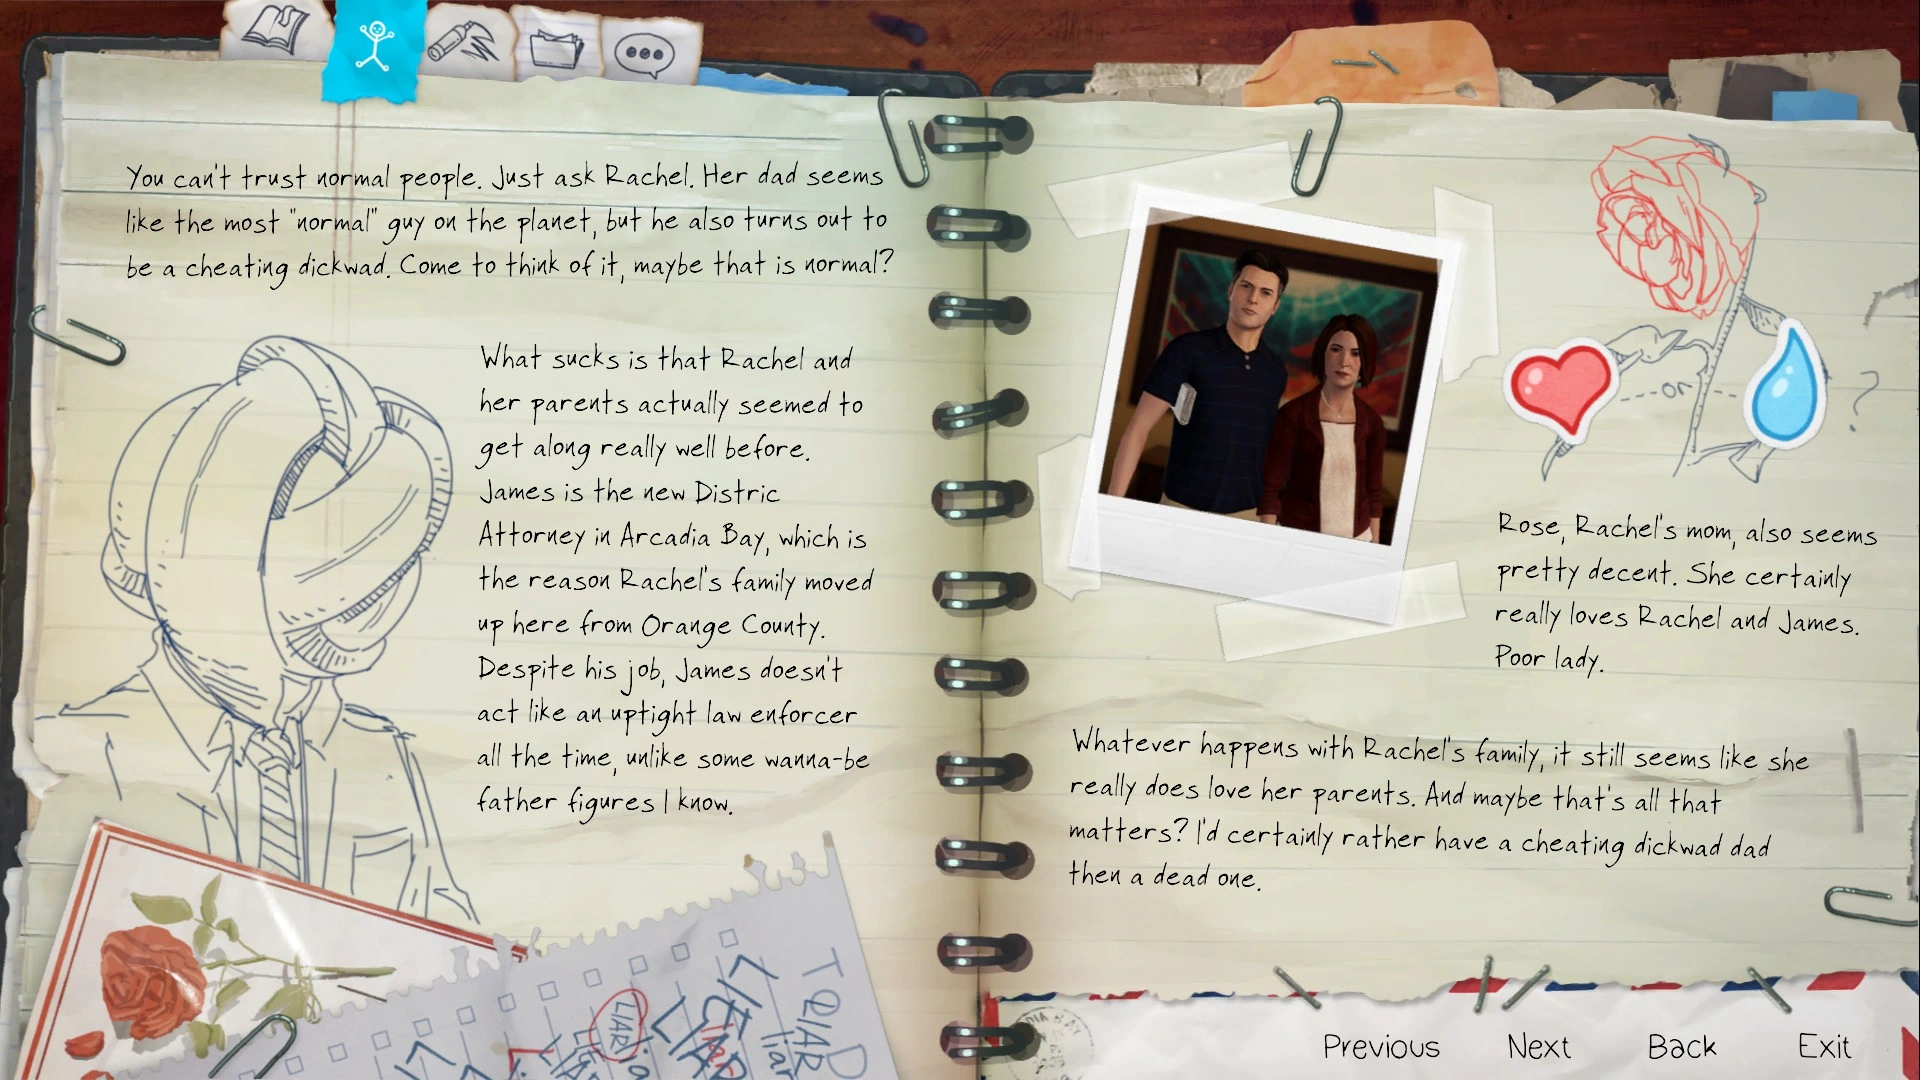 You can't trust normal people. Just ask Rachel. Her dad seems
like the most "normal" guy on the planet, but he also turns out to
be a cheating dickwad. Come to think of it, maybe that is normal?
What sucks is that Rachel and
her parents actually seemed to
get along really well before.
James is the new Distric
Attorney in Arcadia Bay, which is
the reason Rachel's family moved
up here from Orange County.
Despite his job, James doesn't
act like an uptight law enforcer
all the time, unlike some wanna-be
father figures I know.
TO DO
LIAR
liar
LIAR
LIAR
-or-
?
Rose, Rachel's mom, also seems
pretty decent. She certainly
really loves Rachel and James.
Poor lady.
Whatever happens with Rachel's family, it still seems like she
really does love her parents. And maybe that's all that
matters? I'd certainly rather have a cheating dickwad dad
then a dead one.
Previous
Next
Back
Exit